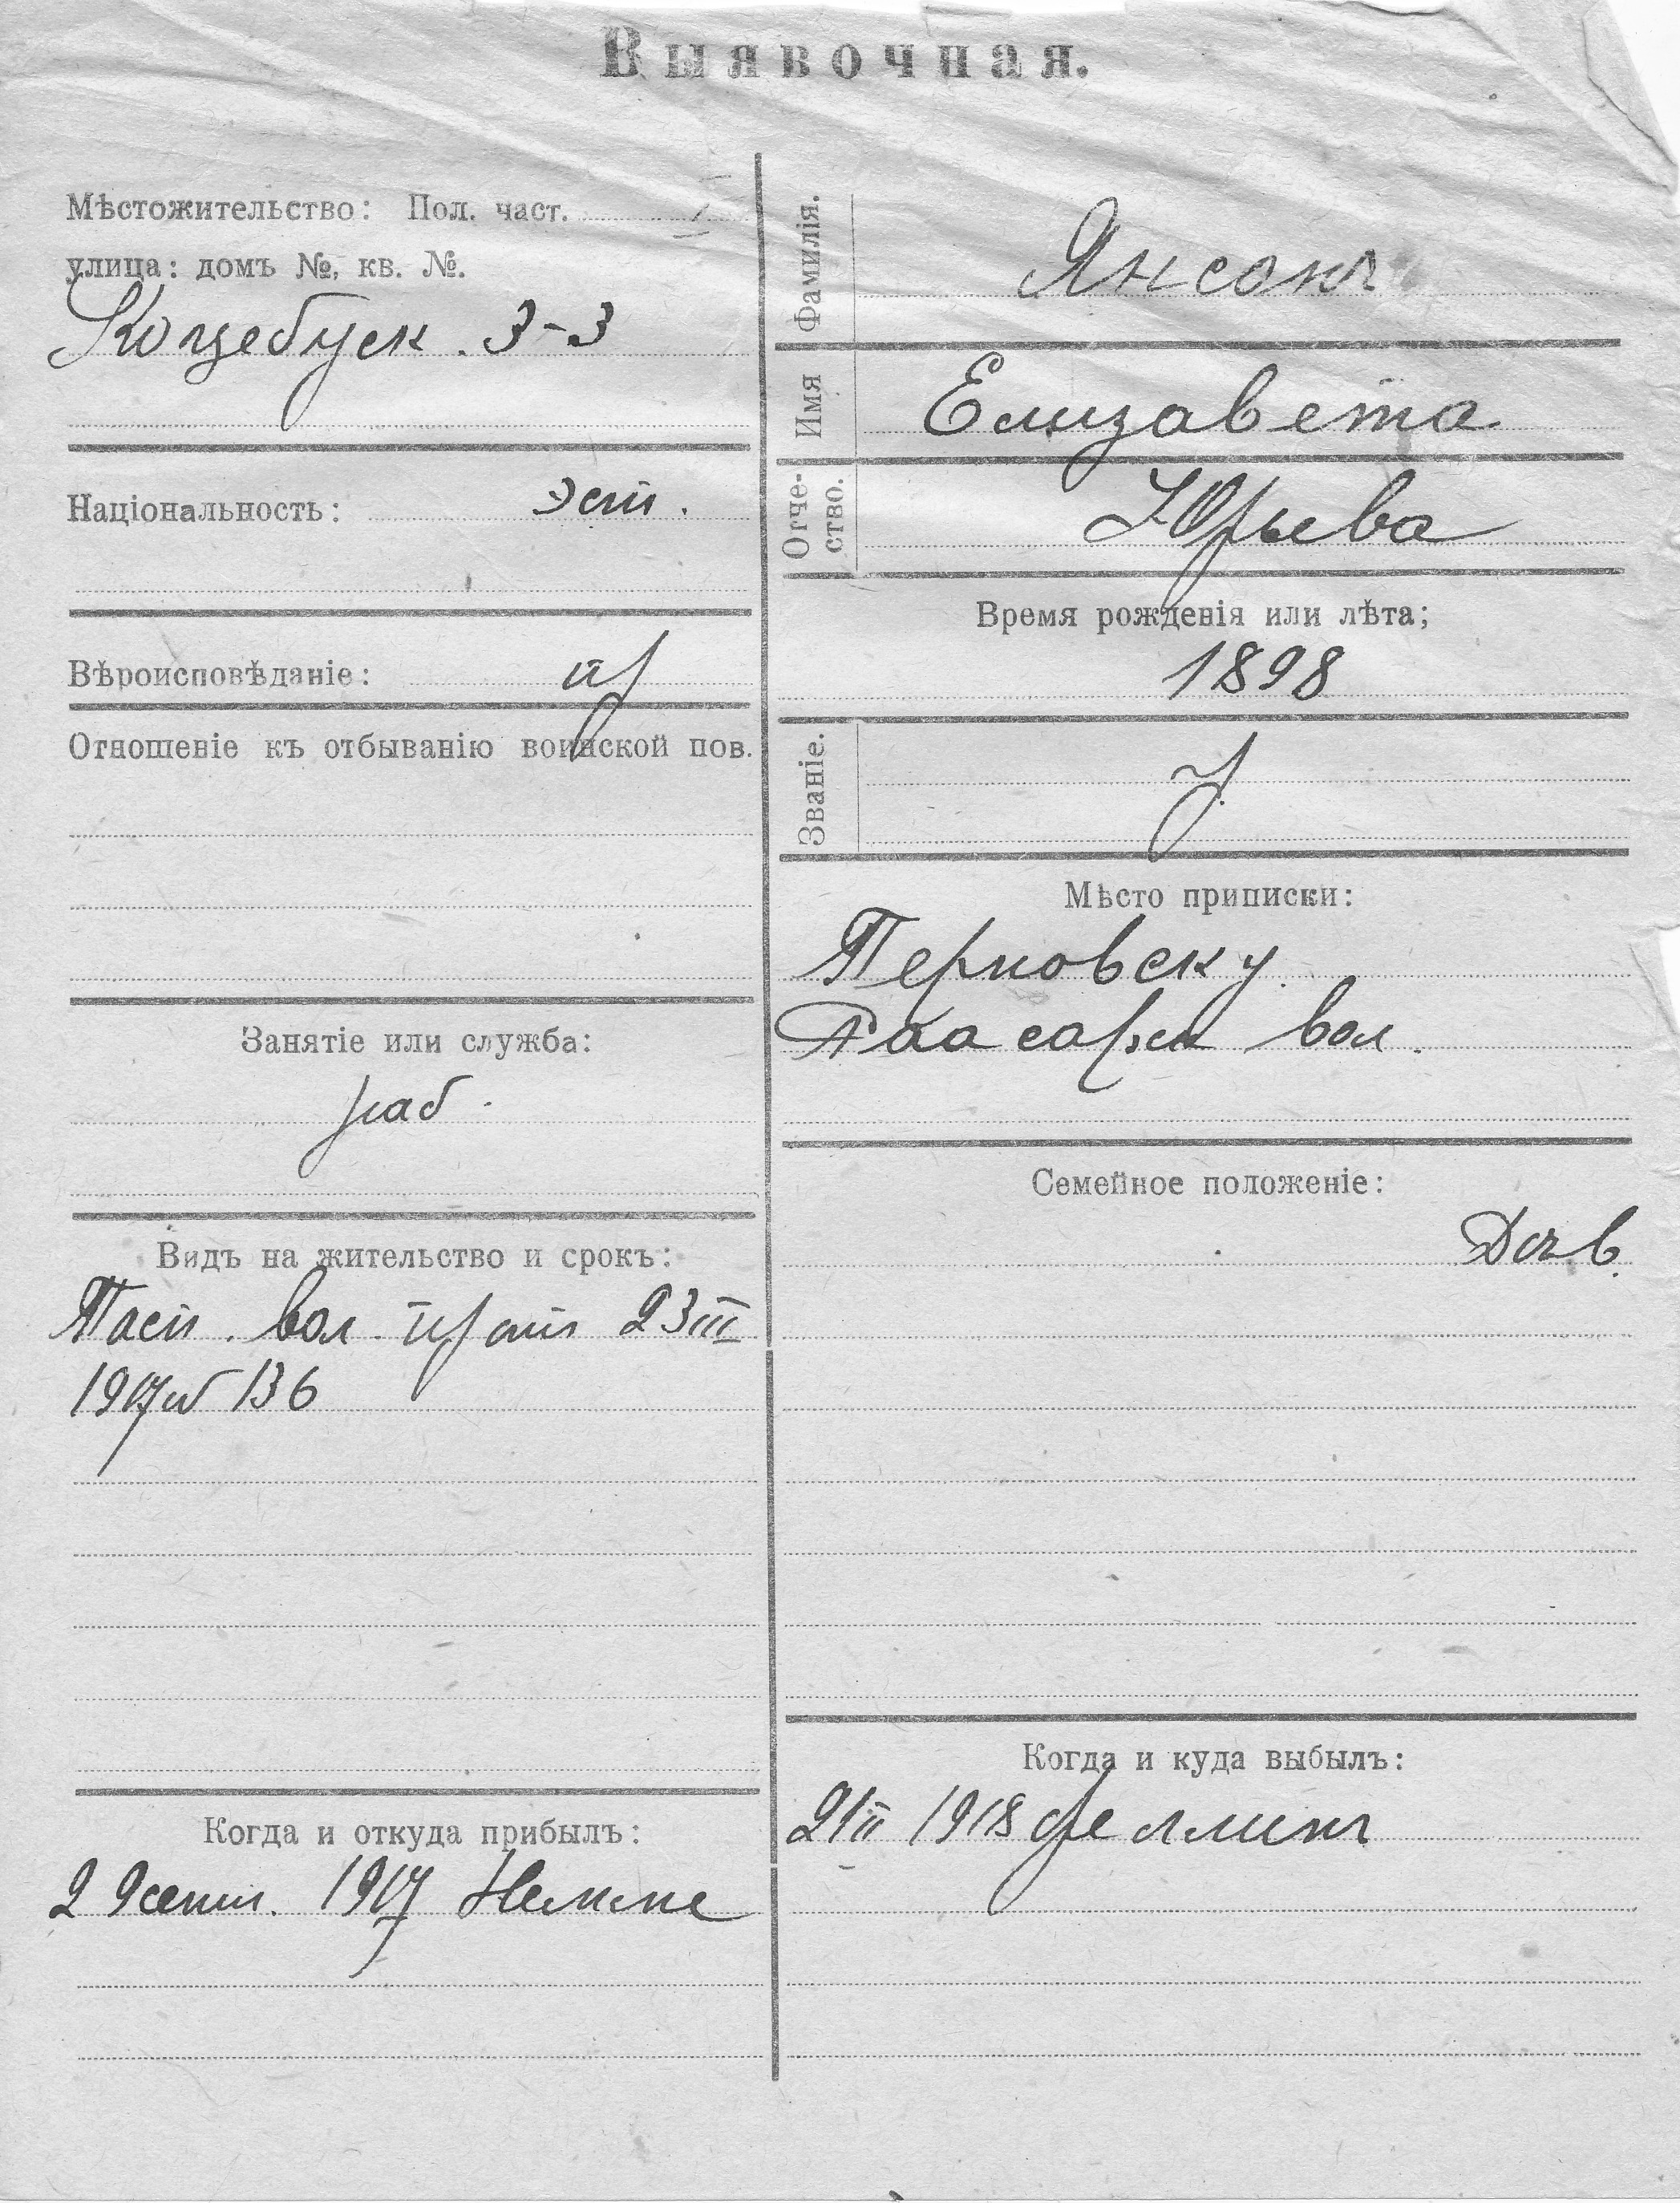 Выявочная.
Мѣстожительство: Пол. част. 1
улица: домъ №, кв. №.
Коцебуск. 3-3
Національность: эст.
Вѣроисповѣданіе: пр
Отношеніе къ отбыванію воинской пов.
Занятіе или служба:
раб.
Видъ на жительство и срокъ:
Пасп. вол. пр от 23 III
1917 № 136
Когда и откуда прибылъ:
29 сент. 1917 Немме
Фамилія. Янсонъ
Имя Елизавета
Отче-
ство. Юрьева
Время рожденія или лѣта;
1898
Званіе.
Мѣсто приписки:
Перновск у.
вол.
Семейное положеніе:
Дѣв.
Когда и куда выбылъ:
21 II 1918 Феллинъ